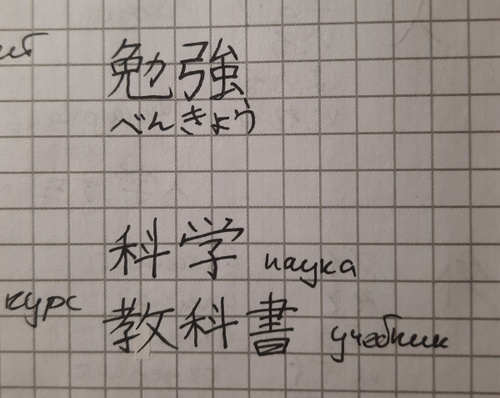 勉強
べんきょう
科学 наука
курс 教科書 учебник